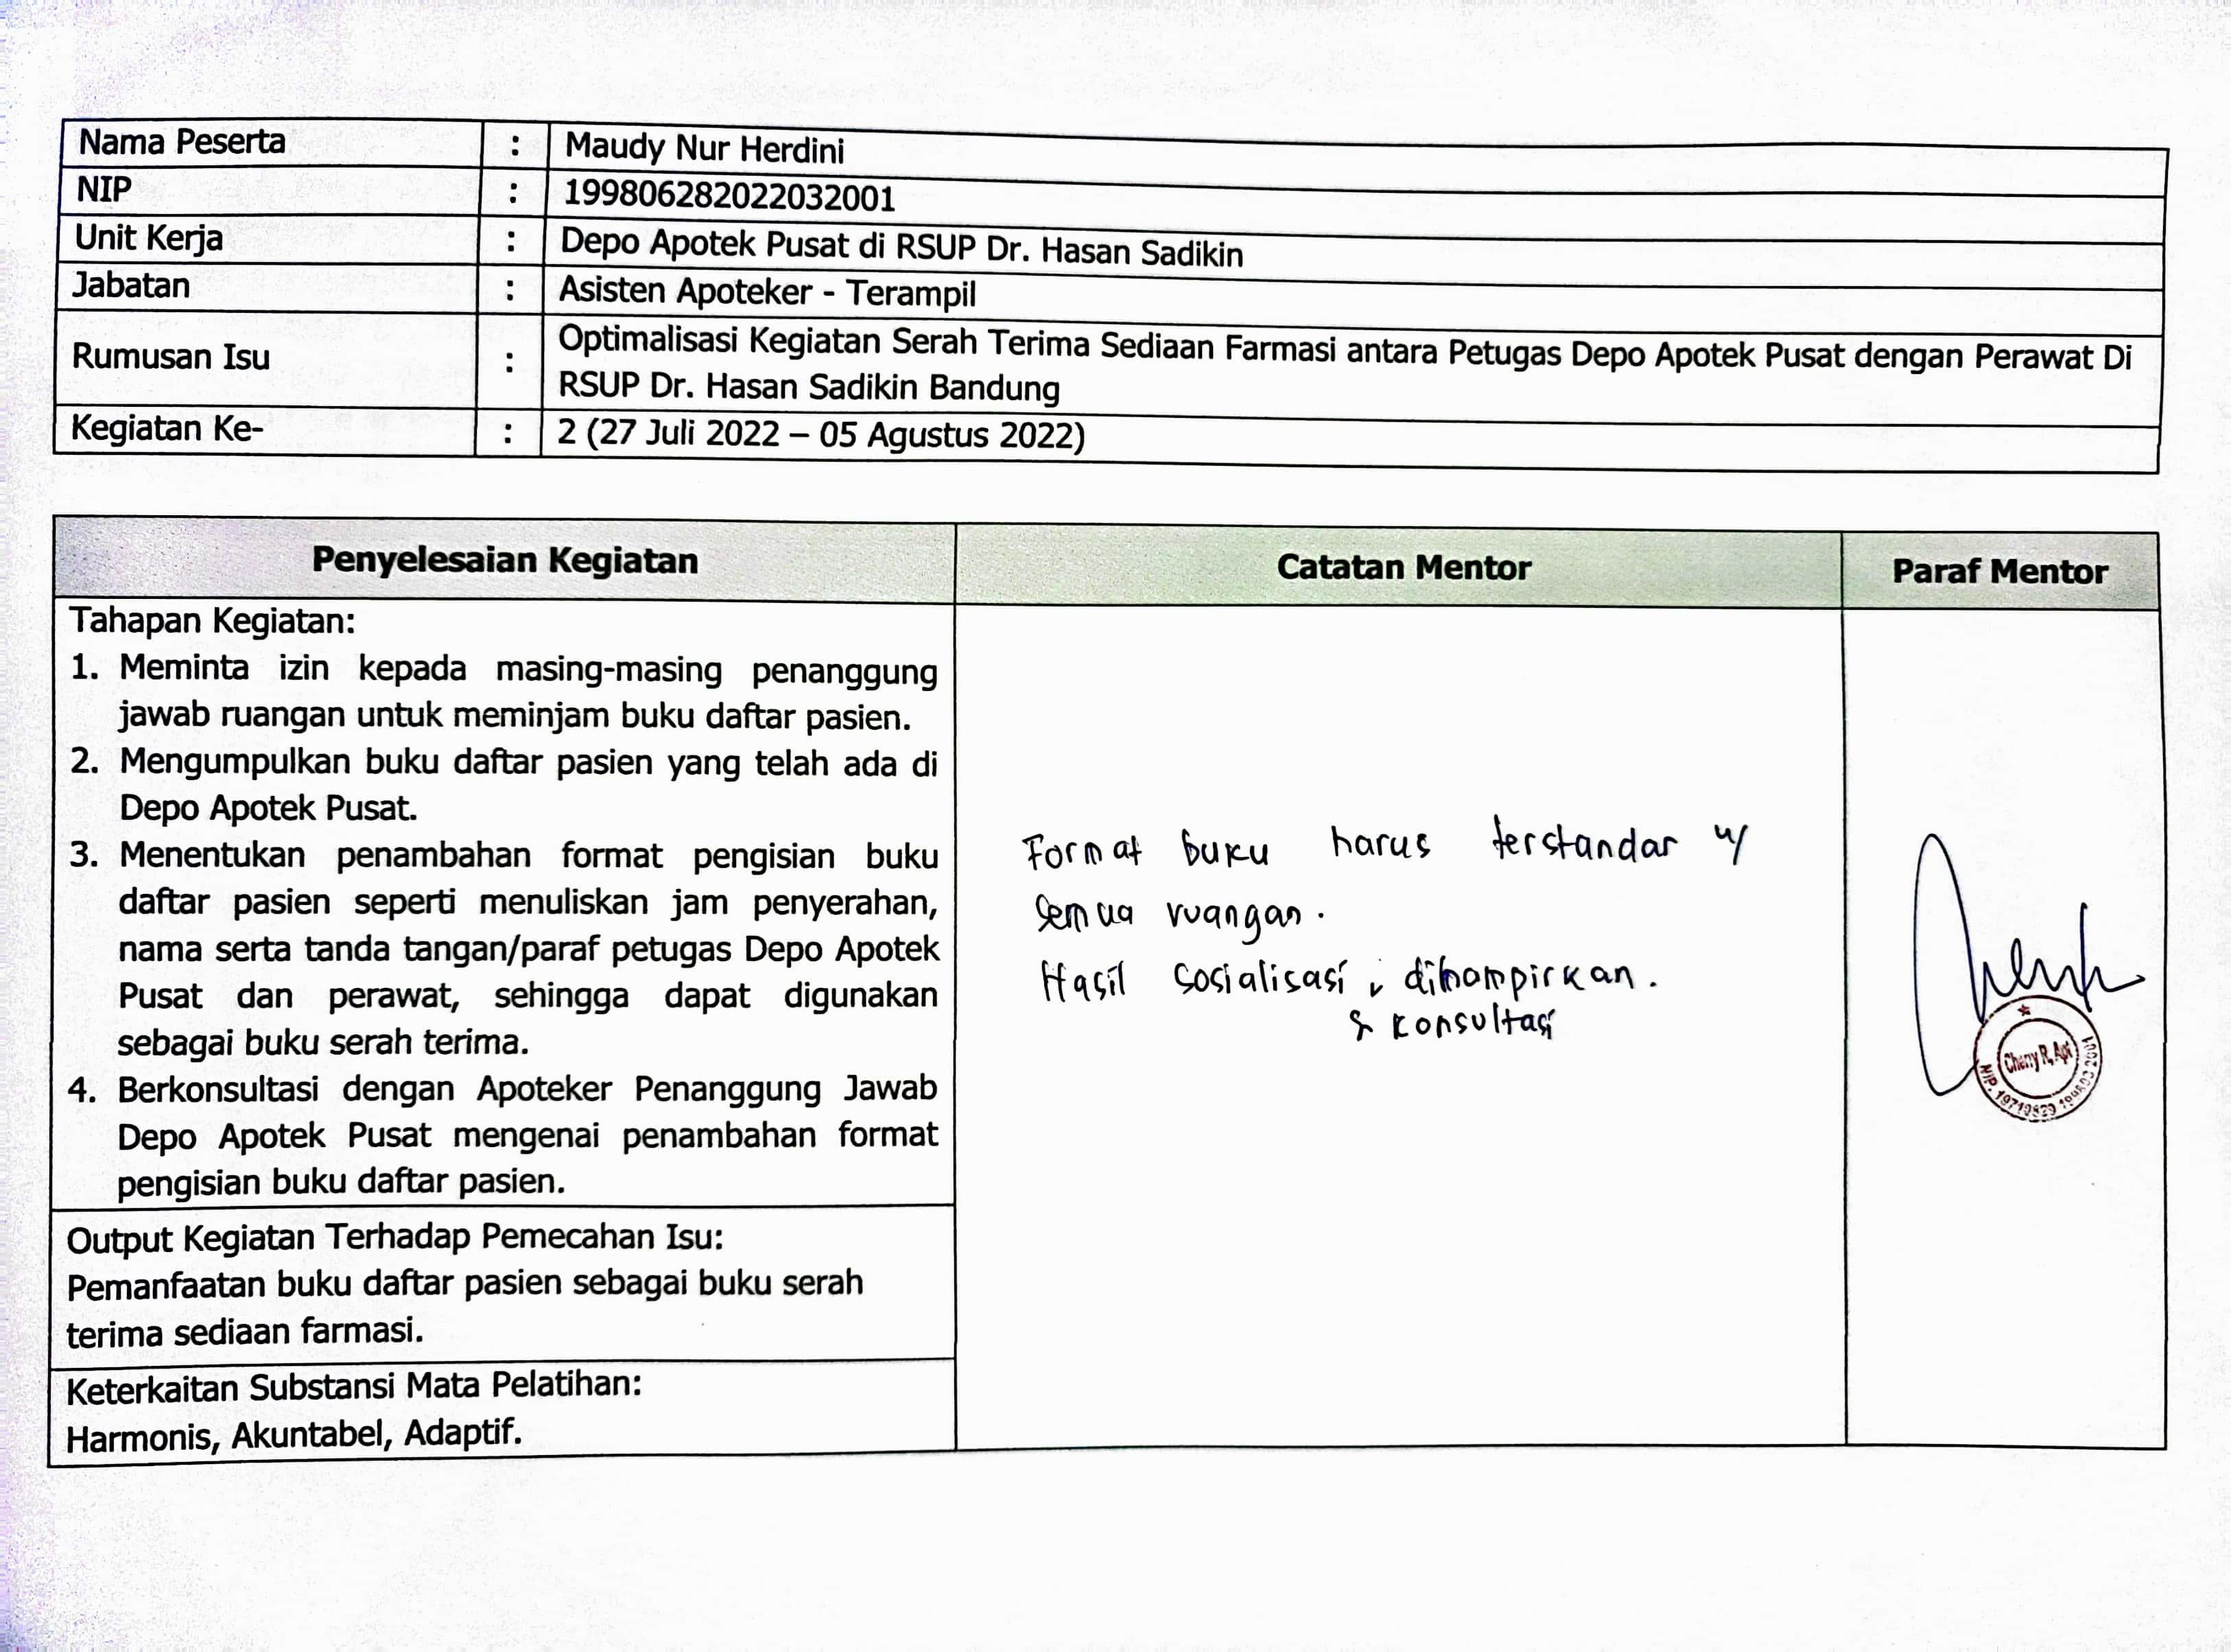 Nama Peserta : Maudy Nur Herdini
NIP : 199806282022032001
Unit Kerja : Depo Apotek Pusat di RSUP Dr. Hasan Sadikin
Jabatan : Asisten Apoteker - Terampil
Rumusan Isu : Optimalisasi Kegiatan Serah Terima Sediaan Farmasi antara Petugas Depo Apotek Pusat dengan Perawat Di
RSUP Dr. Hasan Sadikin Bandung
Kegiatan Ke- : 2 (27 Juli 2022 – 05 Agustus 2022)
Penyelesaian Kegiatan
Catatan Mentor
Paraf Mentor
Tahapan Kegiatan:
1. Meminta izin kepada masing-masing penanggung
jawab ruangan untuk meminjam buku daftar pasien.
2. Mengumpulkan buku daftar pasien yang telah ada di
Depo Apotek Pusat.
3. Menentukan penambahan format pengisian buku
daftar pasien seperti menuliskan jam penyerahan,
nama serta tanda tangan/paraf petugas Depo Apotek
Pusat dan perawat, sehingga dapat digunakan
sebagai buku serah terima.
4. Berkonsultasi dengan Apoteker Penanggung Jawab
Depo Apotek Pusat mengenai penambahan format
pengisian buku daftar pasien.
Output Kegiatan Terhadap Pemecahan Isu:
Pemanfaatan buku daftar pasien sebagai buku serah
terima sediaan farmasi.
Keterkaitan Substansi Mata Pelatihan:
Harmonis, Akuntabel, Adaptif.
Format buku harus terstandar u/
semua ruangan.
Hasil sosialisasi dilampirkan.
& konsultasi
Cherry R, Apt
NIP.